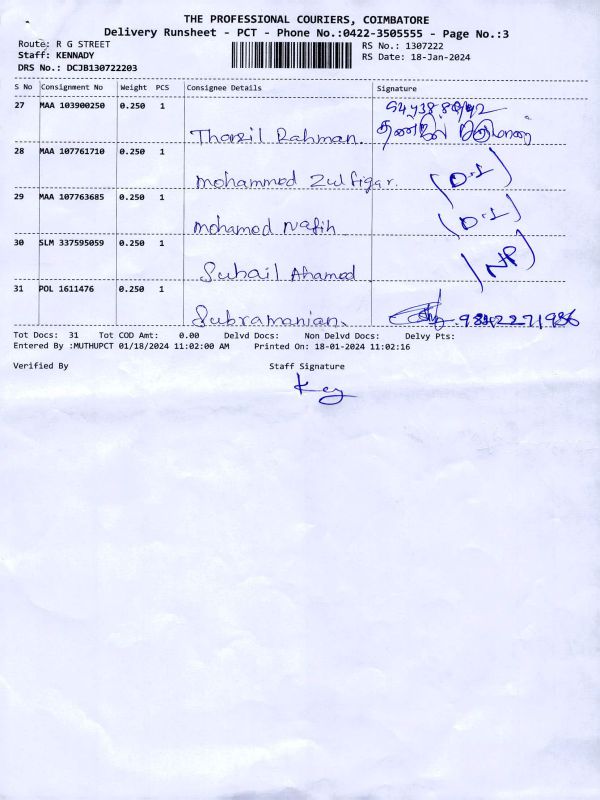 THE PROFESSIONAL COURIERS, COIMBATORE
Delivery Runsheet - PCT - Phone No.:0422-3505555 - Page No.:3
Route: R G STREET
RS No.: 1307222
Staff: KENNADY
RS Date: 18-Jan-2024
DRS No.: DCJB130722203
S No Consignment No Weight PCS Consignee Details Signature
27 MAA 103900250 0.250 1
Rahman.
28 MAA 107761710 0.250 1
Mohammed Zulfigar. (D.I)
29 MAA 107763685 0.250 1
Mohamed Nafih (D.I)
30 SLM 337595059 0.250 1
Suhail Ahamed (NP)
31 POL 1611476 0.250 1
Subramanian.
Tot Docs: 31 Tot COD Amt: 0.00 Delvd Docs: Non Delvd Docs: Delvy Pts:
Entered By :MUTHUPCT 01/18/2024 11:02:00 AM Printed On: 18-01-2024 11:02:16
Verified By Staff Signature